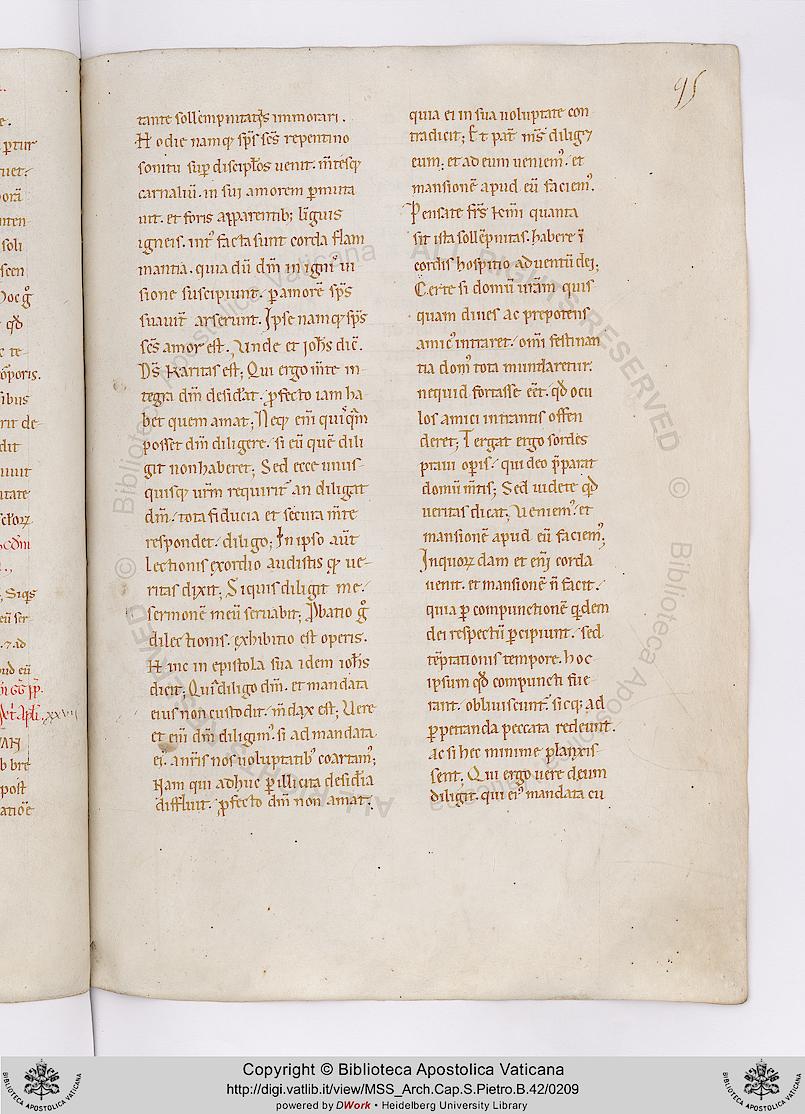 95
tante sollempnitatis immorari.
Hodie namq; sp̄s sc̄s repentino
sonitu sup̄ discipłos uenit. m̄tesq;
carnaliū. in sui amorem p̄muta
uit. et foris apparentib; linguis
igneis. int᷒ facta sunt corda flam
mantia. quia dū dm̄ in igni᷒ ui
sione suscipiunt. p̄ amorē sp̄s
suauit̄ arserunt. Ipse namq; sp̄s
sc̄s amor est. Unde et ioh̄s dic̄.
D̄s karitas est; Qui ergo m̄te in
tegra dm̄ desiderat. p̄fecto iam ha
bet quem amat; Neq; eni᷒ quisqm̄
posset dm̄ diligere. si eū quē dili
git non haberet; Sed ecce unus
quisq; ur̄m requirit᷒ an diligat
dm̄. tota fiducia et secura m̄te
respondet. diligo; In ipso aūt
lectionis exordio audistis qd ue
ritas dixit; Siquis diligit me.
sermonē meū seruabit; Probatio g̊
dilectionis. exhibitio est operis.
Hinc in epistola sua idem ioh̄s
dicit; Qui diligo dm̄. et mandata
eius non custodit. m̄dax est; Uere
et eni᷒ dm̄ diligim᷒. si ad mandata
ei᷒ a nr̄is nos uoluptatib᷒ coartam᷒;
Nam qui adhuc p̄ illicita desideria
diffluit. p̄fecto dm̄ non amat.
quia ei in sua uoluptate con
tradicit; Et pat̄ m̄s diliget
eum. et ad eum ueniem᷒. et
mansionē apud eū faciem᷒.
Pensate frs̄ kmī quanta
sit ista sollēpnitas. habere ī
cordis hospitio aduentū dei;
Certe si domū ur̄am quis
quam diues ac prepotens
amic᷒ intraret. omī festinan
tia dom᷒ tota mundaretur.
nequid fortasse eēt. qd ocu
los amici intrantis offen
deret; Tergat ergo sordes
praui op̄is. qui deo p̄parat
domū m̄tis; Sed uidete qd
ueritas dicat; Ueniem᷒. et
mansionē apud eū faciem᷒;
Inquorꝝdam et eni᷒ corda
uenit. et mansionē n̄ facit.
quia p̄ compunctionē q͛dem
dei respectū p̄cipiunt. sed
tēptationis tempore. hoc
ipsum qd compuncti fue
rant. obliuiscunt᷒. sicq; ad
p̄petranda peccata redeunt.
ac si hec minime planxis
sent; Qui ergo uere deum
diligit. qui ei᷒ mandata cu
Copyright © Biblioteca Apostolica Vaticana
http://digi.vatlib.it/view/MSS_Arch.Cap.S.Pietro.B.42/0209
powered by DWork • Heidelberg University Library